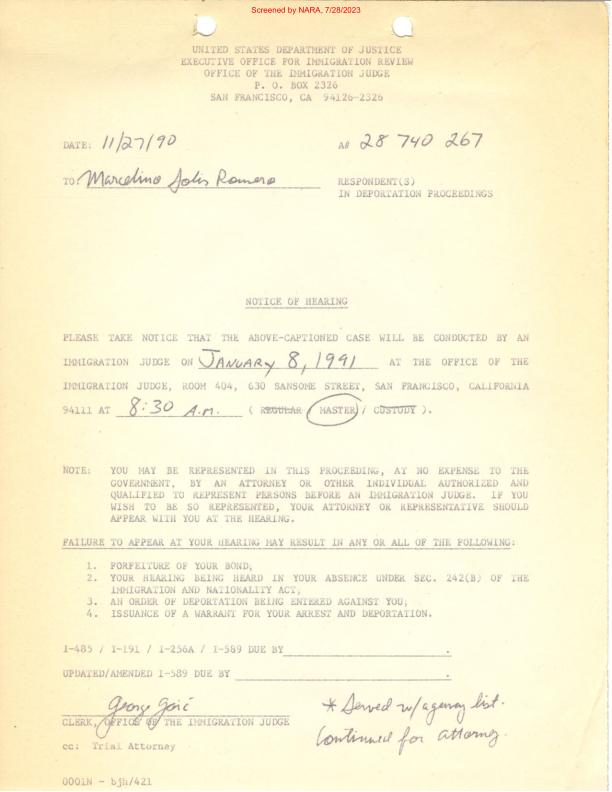 Screened by NARA, 7/28/2023
UNITED STATES DEPARTMENT OF JUSTICE
EXECUTIVE OFFICE FOR IMMIGRATION REVIEW
OFFICE OF THE IMMIGRATION JUDGE
P. O. BOX 2326
SAN FRANCISCO, CA 94126-2326
DATE: 11/27/90 A# 28 740 267
TO: Marcelino Solis Romero RESPONDENT(S)
IN DEPORTATION PROCEEDINGS
NOTICE OF HEARING
PLEASE TAKE NOTICE THAT THE ABOVE-CAPTIONED CASE WILL BE CONDUCTED BY AN
IMMIGRATION JUDGE ON JANUARY 8, 1991 AT THE OFFICE OF THE
IMMIGRATION JUDGE, ROOM 404, 630 SANSOME STREET, SAN FRANCISCO, CALIFORNIA
94111 AT 8:30 A.M. ( REGULAR MASTER / CUSTODY ).
NOTE: YOU MAY BE REPRESENTED IN THIS PROCEEDING, AT NO EXPENSE TO THE
GOVERNMENT, BY AN ATTORNEY OR OTHER INDIVIDUAL AUTHORIZED AND
QUALIFIED TO REPRESENT PERSONS BEFORE AN IMMIGRATION JUDGE. IF YOU
WISH TO BE SO REPRESENTED, YOUR ATTORNEY OR REPRESENTATIVE SHOULD
APPEAR WITH YOU AT THE HEARING.
FAILURE TO APPEAR AT YOUR HEARING MAY RESULT IN ANY OR ALL OF THE FOLLOWING:
1. FORFEITURE OF YOUR BOND;
2. YOUR HEARING BEING HEARD IN YOUR ABSENCE UNDER SEC. 242(B) OF THE
IMMIGRATION AND NATIONALITY ACT;
3. AN ORDER OF DEPORTATION BEING ENTERED AGAINST YOU;
4. ISSUANCE OF A WARRANT FOR YOUR ARREST AND DEPORTATION.
I-485 / I-191 / I-256A / I-589 DUE BY .
UPDATED/AMENDED I-589 DUE BY .
George * Served w/agency list.
CLERK, OFFICE OF THE IMMIGRATION JUDGE Continued for attorney.
cc: Trial Attorney
0001N - bjh/421